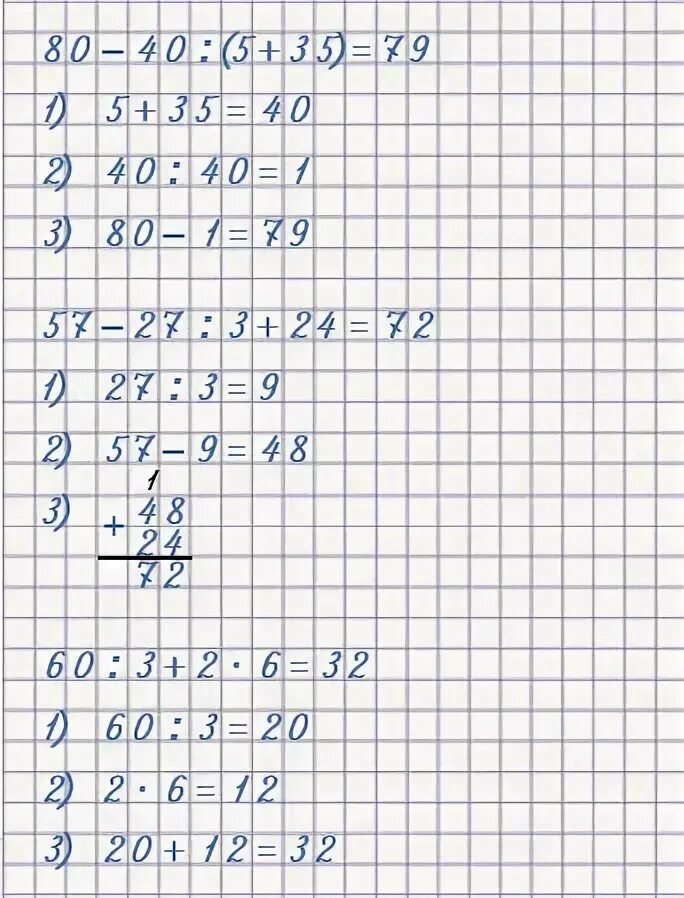 80 − 40 : (5 + 35) = 79
1) 5 + 35 = 40
2) 40 : 40 = 1
3) 80 − 1 = 79
57 − 27 : 3 + 24 = 72
1) 27 : 3 = 9
2) 57 − 9 = 48
1
3) + 48
24
72
60 : 3 + 2 · 6 = 32
1) 60 : 3 = 20
2) 2 · 6 = 12
3) 20 + 12 = 32